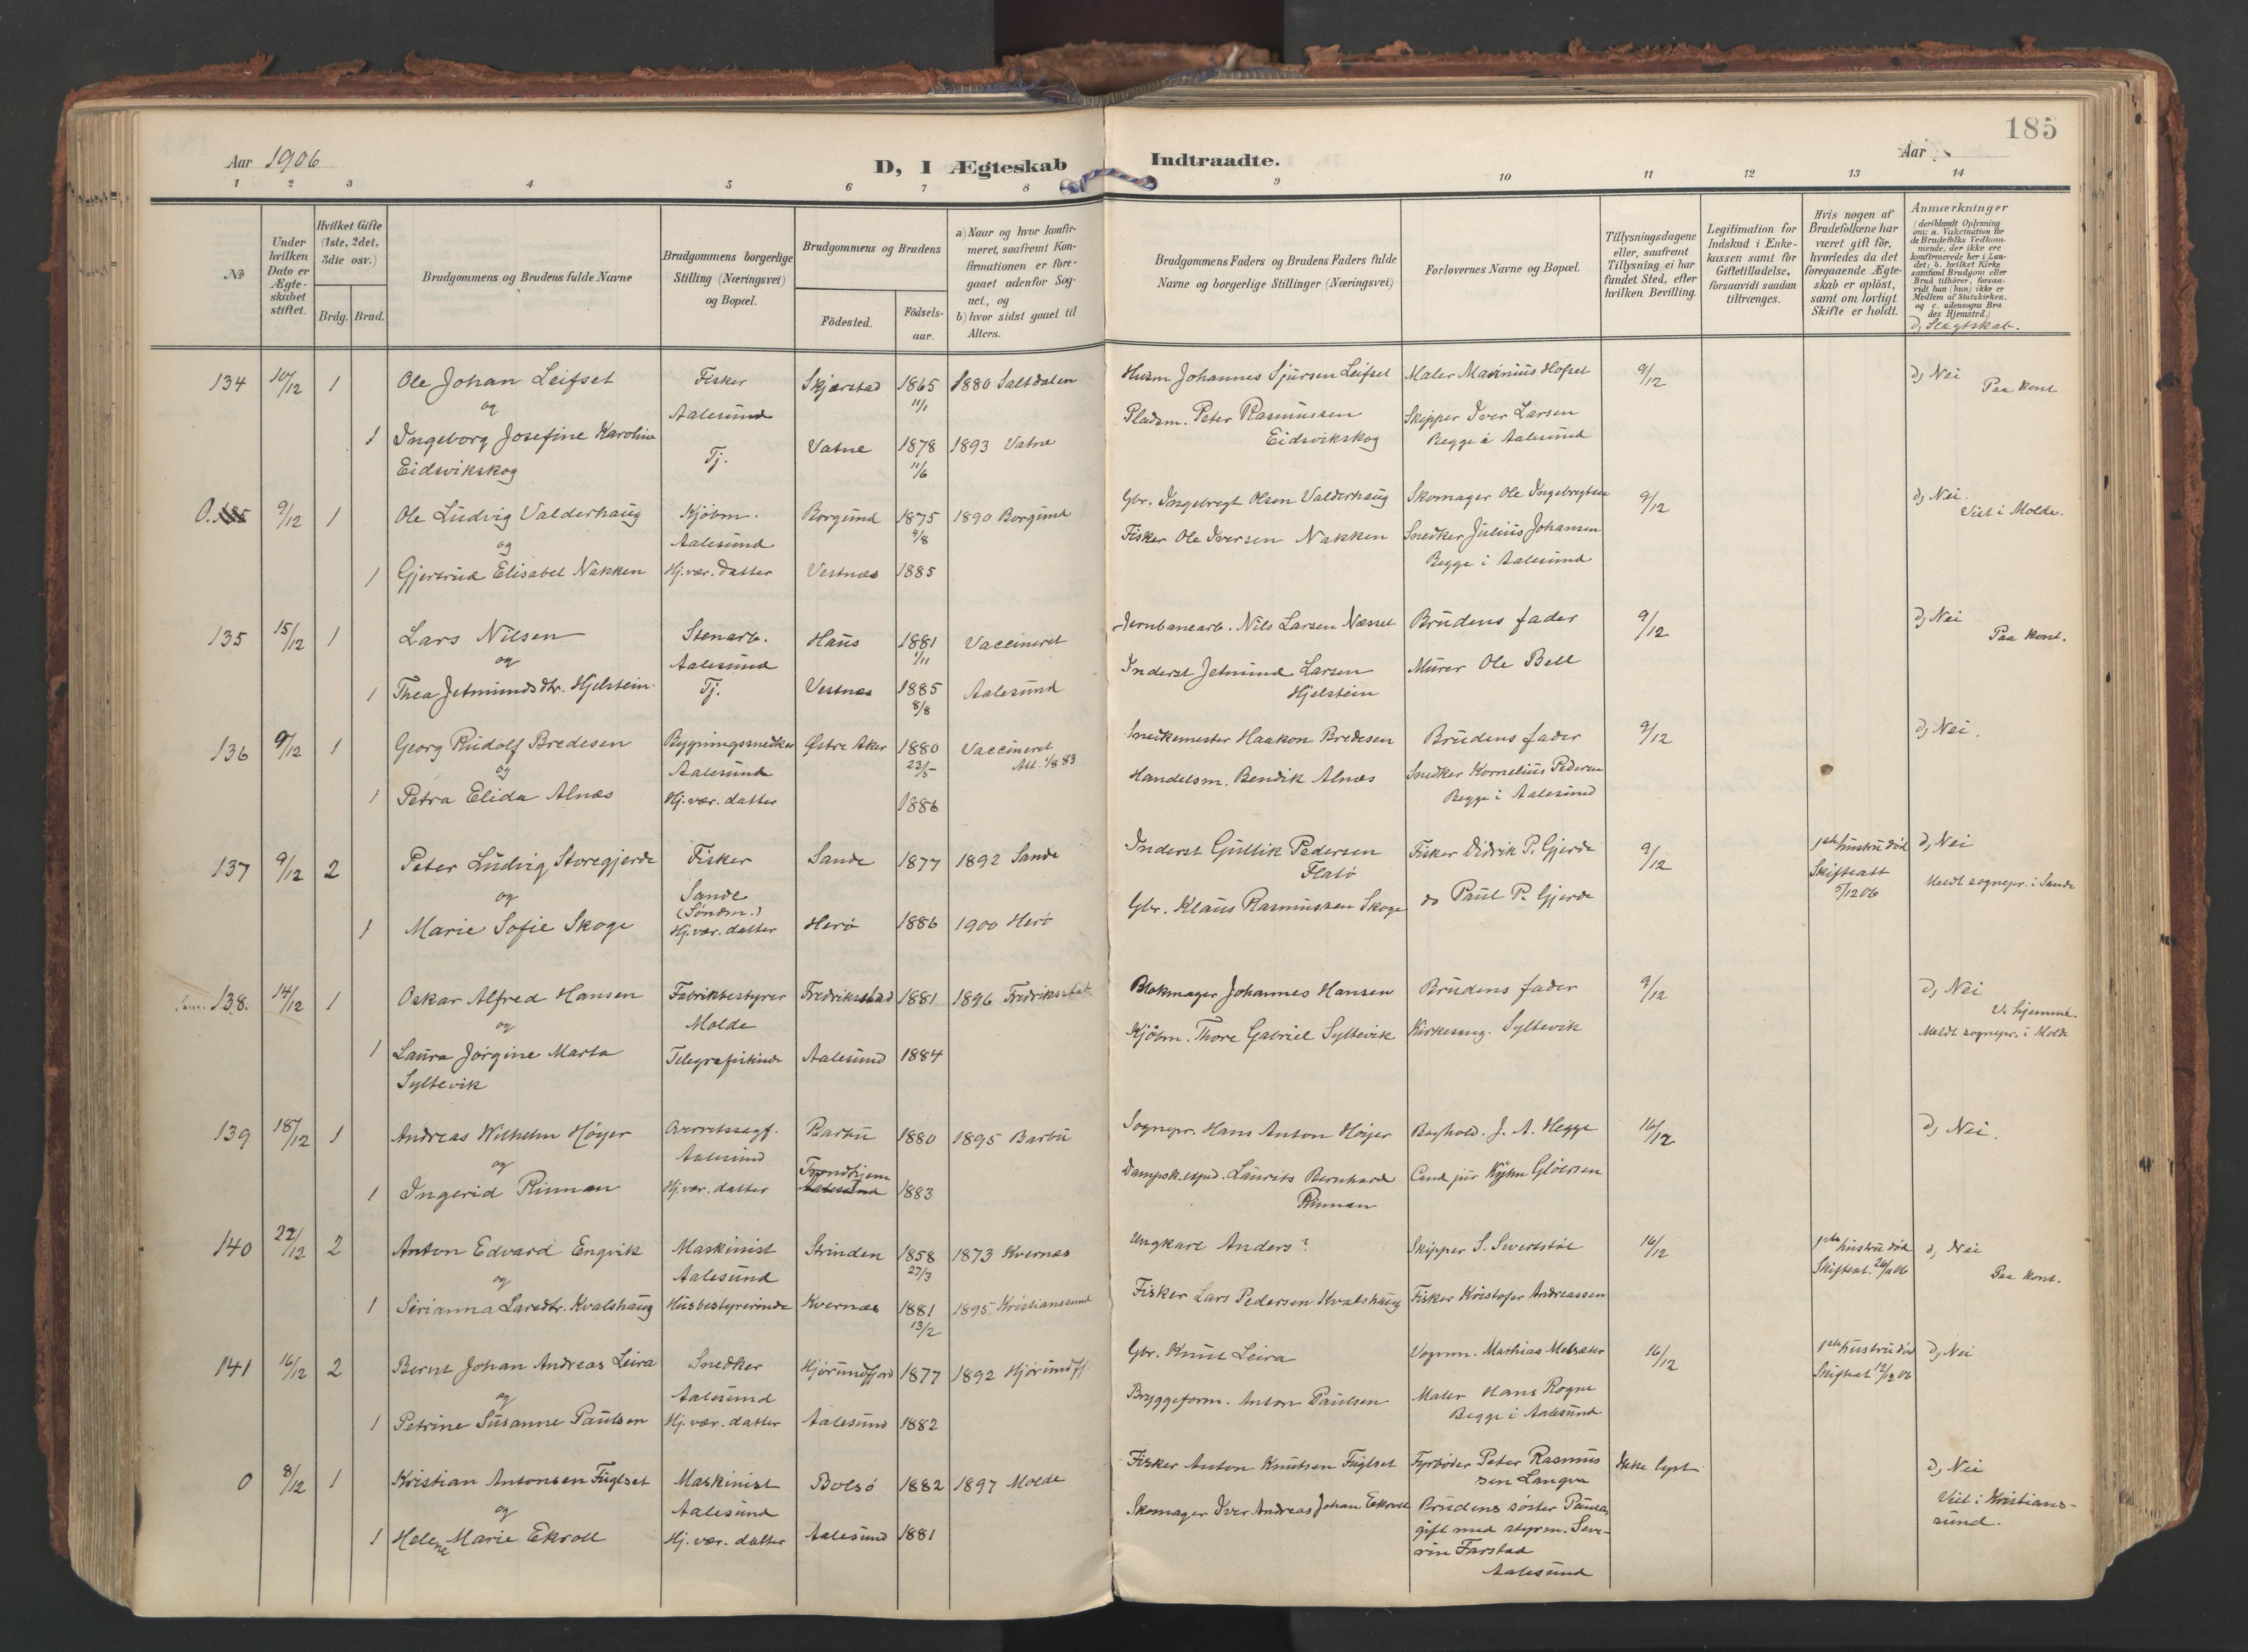 185
Aar 1906
D, I Ægteskab Indtraadte.
Aar
1 2 3 4 5 6 7 8 9 10 11 12 13 14
No
Under hvilken Dato er Ægteskabet stiftet.
Hvilket Gifte (1ste, 2det, 3die osv.)
Brdg. Brud.
Brudgommens og Brudens fulde Navne
Brudgommens borgerlige Stilling (Næringsvei) og Bopæl.
Brudgommens og Brudens
Fødested.
Fødselsaar.
a) Naar og hvor konfirmeret, saafremt Konfirmationen er foregaaet udenfor Sognet, og
b) hvor sidst gaaet til Alters.
Brudgommens Faders og Brudens Faders fulde Navne og borgerlige Stillinger (Næringsvei)
Forlovernes Navne og Bopæl.
Tillysningsdagene eller, saafremt Tillysning ei har fundet Sted, efter hvilken Bevilling.
Legitimation for Indskud i Enkekassen samt for Giftetilladelse, forsaavidt saadan tiltrænges.
Hvis nogen af Brudefolkene har været gift før, hvorledes da det foregaaende Ægteskab er opløst, samt om lovligt Skifte er holdt.
Anmærkninger
(deriblandt Oplysning om: a. Vakcination for de Brudefolks Vedkommende, der ikke ere konfirmerede her i Landet; b. hvilket Kirkesamfund Brudgom eller Brud tilhører, forsaavidt han (hun) ikke er Medlem af Statskirken, og c. udensogns Brudes Hjemsted.)
d, Slægtskab.
134 10/12 1 Ole Johan Leifset Fisker Skjærstad 1865 1880 Saltdalen Husm Johannes Sjursen Leifset Maler Marinius Hofset 9/12 d, Nei
og Aalesund 11/1 Paa Kont
Pladsm. Peter Rasmussen Skipper Iver Larsen
1 Ingeborg Josefine Karoline Tj. Vatne 1878 1893 Vatne Eidsvikskog Begge i Aalesund
Eidsvikskog 11/6
0. 135 9/12 1 Ole Ludvig Valderhaug Kjøbm. Borgund 1875 1890 Borgund Gbr. Ingebregt Olsen Valderhaug Skomager Ole Ingebregtsen 9/12 d, Nei.
og Aalesund 4/8 Fisker Ole Iversen Nakken Snedker Julius Johansen Viet i Molde.
1 Gjertrud Elisabet Nakken Hj.vær. datter Vestnæs 1885 Begge i Aalesund
135 15/12 1 Lars Nilsen Stenarb. Haus 1881 Vaccineret Jernbanearb. Nils Larsen Næsset Brudens fader 9/12 d, Nei
og Aalesund 1/11 Paa Kont.
1 Thea Jetmundsdtr. Hjelstein Tj. Vestnæs 1885 Aalesund Inderst Jetmund Larsen Murer Ole Bell
8/8 Hjelstein
136 9/12 1 Georg Rudolf Bredesen Bygningssnedker Østre Aker 1880 Vaccineret Snedkemester Haakon Bredesen Brudens fader 9/12 d, Nei.
og Aalesund 23/5 Att. 1/8 83
1 Petra Elida Alnæs Hj.vær. datter 1886 Handelsm. Bendik Alnæs Snedker Kornelius Pedersen
Begge i Aalesund
137 9/12 2 Peter Ludvig Storegjerde Fisker Sande 1877 1892 Sande Inderst Gullik Pedersen Fisker Didrik P. Gjerde 9/12 1ste hustru død d, Nei
og Sande Flatø Skifteatt Meldt sognepr. i Sande
(Søndm.) 5/12 06
1 Marie Sofie Skoge Hj.vær. datter Herø 1886 1900 Herø Gbr. Klaus Rasmussen Skoge do Paul P. Gjerde
138. 14/12 1 Oskar Alfred Hansen Fabrikbestyrer Fredriksstad 1881 1896 Fredriksstad Blokmager Johannes Hansen Brudens fader 9/12 d, Nei
og Molde V. hjemme.
1 Laura Jørgine Marta Telegrafistinde Aalesund 1884 Kjøbm. Thore Gabriel Syltevik Kirkesang. Syltevik Meldt sognepr. i Molde
Syltevik
139 18/12 1 Andreas Wilhelm Høyer Overretssagf. Barbu 1880 1895 Barbu Sognepr. Hans Anton Høyer Boghold. J. A. Hegge 16/12 d, Nei.
og Aalesund Trondhjem
1 Ingerid Rinnan Hj.vær. datter Aalesund 1883 Dampsk.exped. Laurits Bernhard Cand jur Kyhn Gløersen
Rinnan
140 22/12 2 Anton Edvard Engvik Maskinist Strinden 1858 1873 Kvernæs Ungkarl Anders? Skipper S. Sivertstøl 16/12 1ste hustru død d, Nei
og Aalesund 27/3 Skifteat. Paa Kont.
1 Serianna Larsdtr. Kvalshaug Husbestyrerinde Kvernæs 1881 1895 Kristianssund Fisker Lars Pedersen Kvalshaug Fisker Kristofer Andreassen
13/2
141 16/12 2 Bernt Johan Andreas Leira Snedker Hjørundfjord 1877 1892 Hjørundfj. Gbr. Knut Leira Vognm. Mathias Melsæter 16/12 1ste hustru død d, Nei
og Aalesund Skifteat 12/12 06
1 Petrine Susanne Paulsen Hj.vær. datter Aalesund 1882 Bryggeform. Anton Paulsen Maler Hans Rogne
Begge i Aalesund
0 8/12 1 Kristian Antonsen Fuglset Maskinist Bolsø 1882 1897 Molde Fisker Anton Knutsen Fuglset Fyrbøder Peter Rasmus Ikke lyst d, Nei
og Aalesund sen Langva Viet i Kristians-
1 Helene Marie Ekroll Hj.vær. datter Aalesund 1881 Skomager Iver Andreas Johan Ekroll Brudens søster sund.
gift med styrm. Seve-
rin Farstad
Aalesund